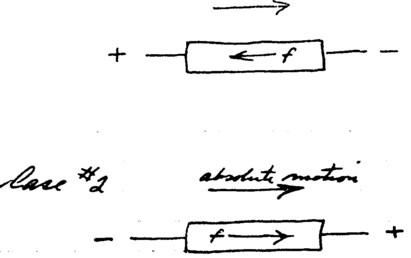 + f -
Case #2
absolute motion
- f +